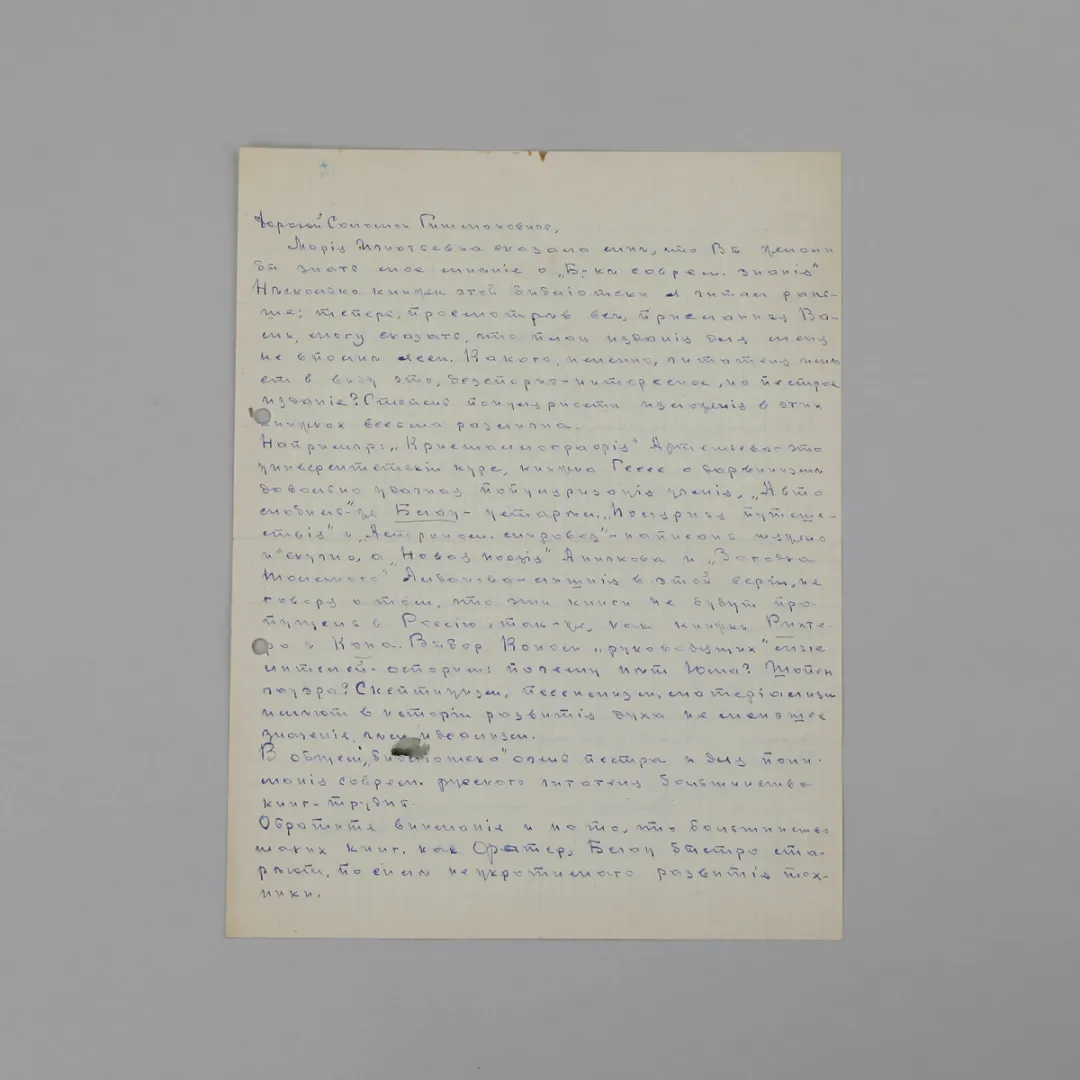 Дорогой Соломон Гитманович,
Марія Игнатьевна сказала мнѣ, что Вы желали
бы знать мое мнѣніе о „Б-кѣ соврем. знанія"
Нѣсколько книжек этой библіотеки я читал рань-
ше; теперь, просмотрѣв всѣ, присланныя Ва-
ми, могу сказать, что план изданія был мнѣ
не вполнѣ ясен. Какого, именно, читателя имѣ-
ет в виду это, безспорно-интересное, но пестрое
изданіе? Степень популярности изложенія в этих
книжках весьма различна.
Например: „Кристаллографія" Артемьева-это
университетскій курс, книжка Гессе о дарвинизмѣ
довольно удачная популяризація ученія, „Авто
мобиль"-же Бегоу-устарѣл. „Полярныя путеше-
ствія" и „Астроном. міровоз"-написаны сухо
и скупо, а „Новая поэзія" Аничкова и „Загадка
Толстого" Алданова-лишнія в этой серіи, не
говоря о том, что эти книги не будут про-
пущены в Россію, так-же, как книжки Рихте-
ра и Кона. Выбор Коном „руководящих" мыс
лителей-оспорим: почему нѣт Юма? Шопен
гауэра? Скептицизм, пессимизм, матеріализм
имѣют в исторіи развитія духа не меньшее
значеніе, чѣм идеализм.
В общем, „библіотека" очень пестра и для пони-
манія соврем. русского читателя большинство
книг-трудны.
Обратите вниманіе и на то, что большинство
таких книг. как Фратер, Бегоу быстро ста-
рѣют, по силѣ неукротимаго развитія тех-
ники.